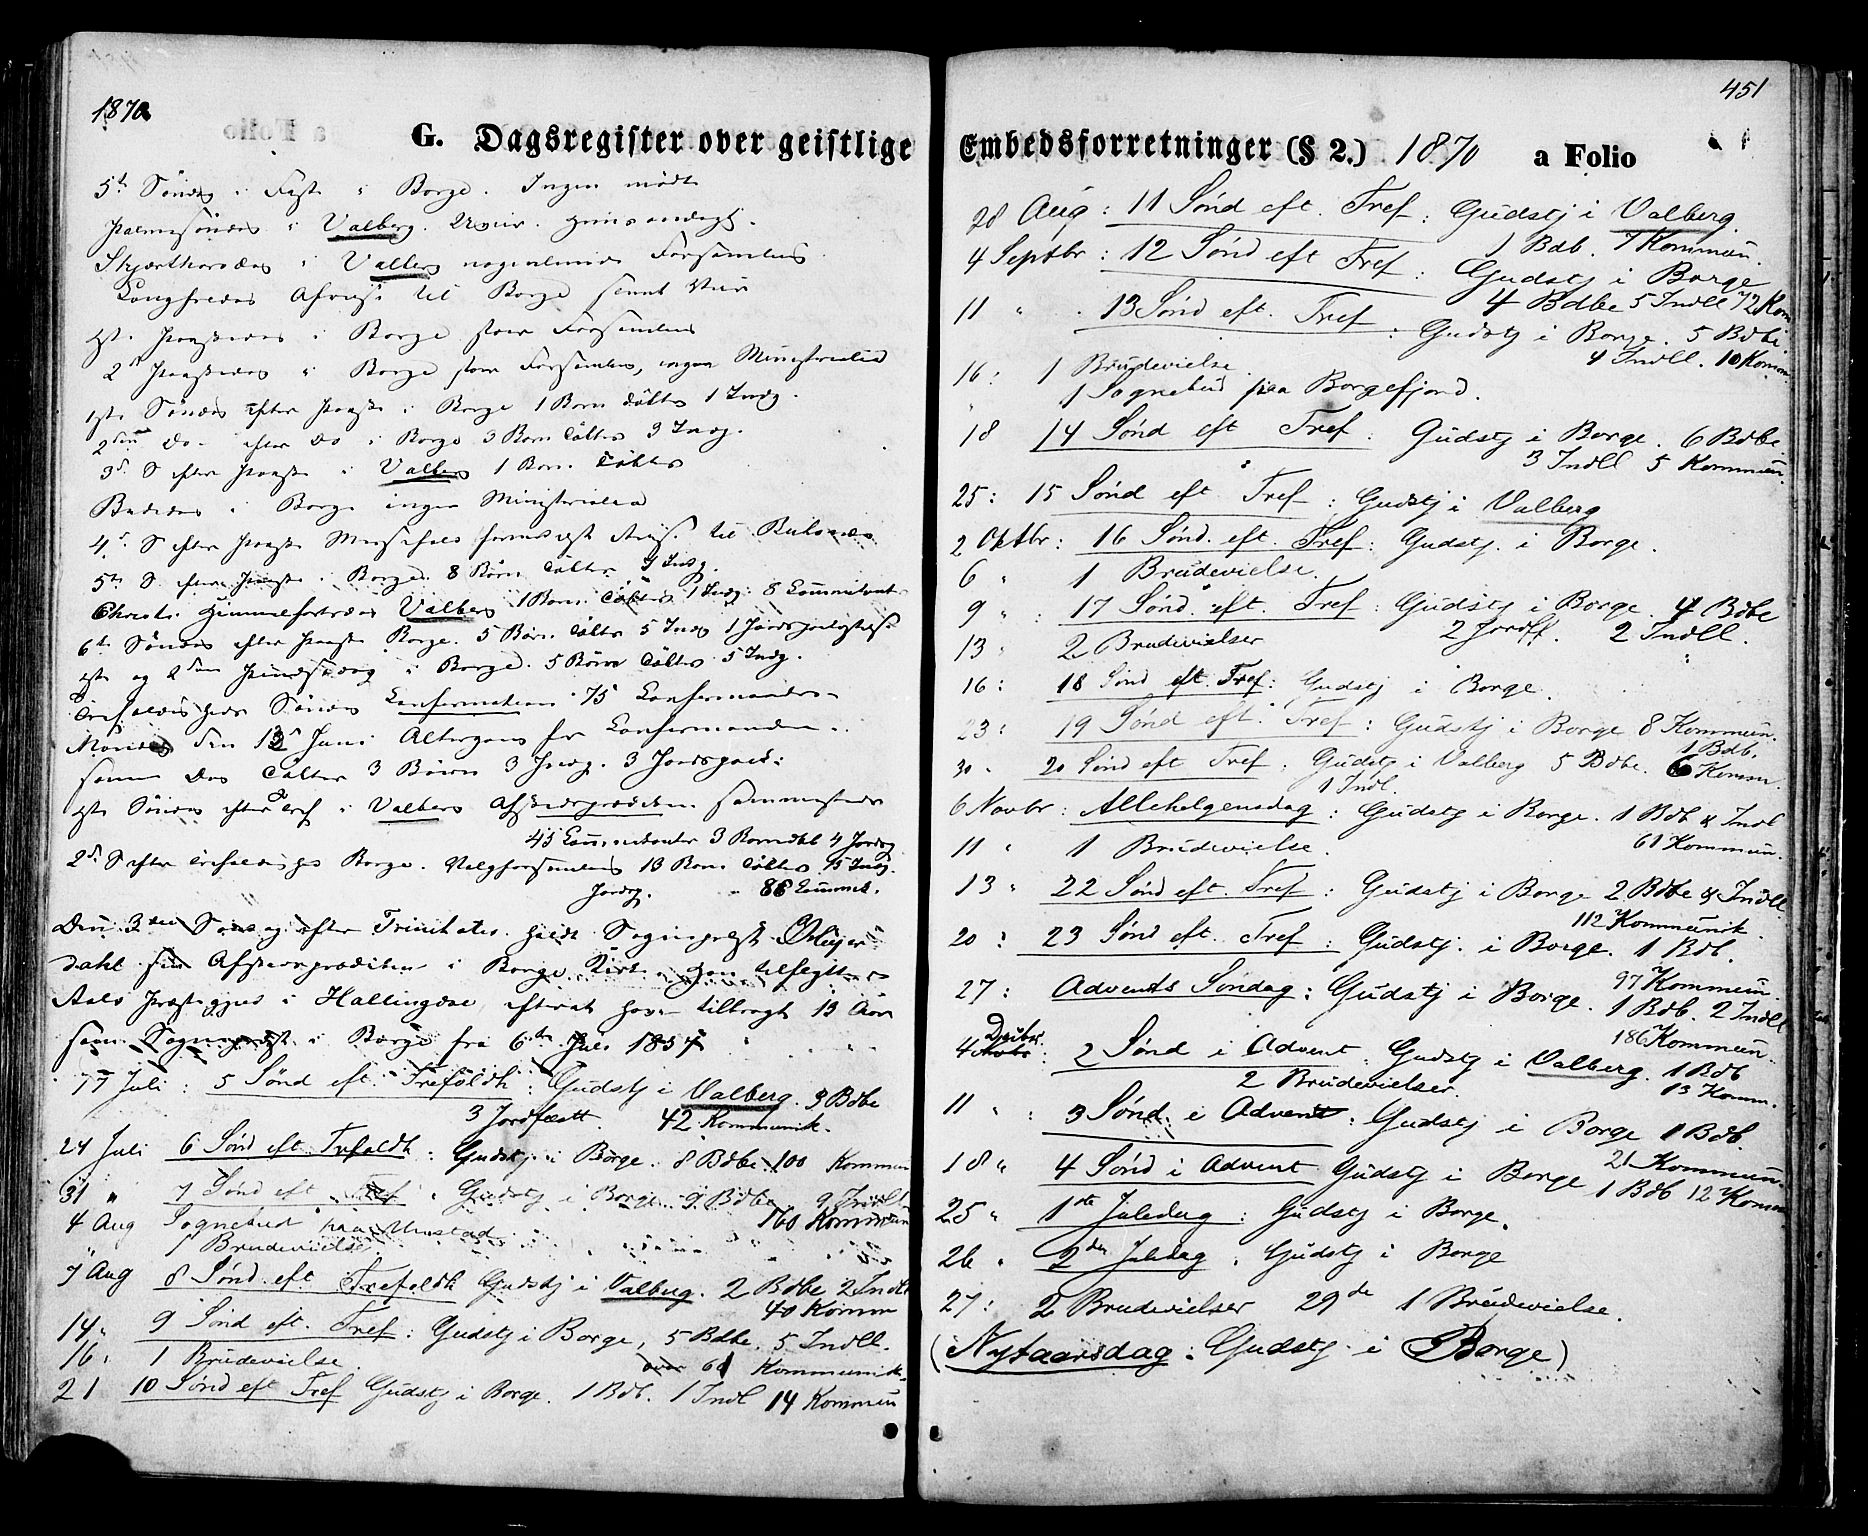 1870
G. Dagsregister over geistlige
5te Søndag i Faste i Borge. Ingen mødt
Palmesøndag i Valberg.
Skjærthorsdag i Valberg nogenlunde Forsamling
Langfredag til Borge
1ste Paaskedag i Borge stor Forsamling
2den Paaskedag i Borge stor Forsamling, ingen Ministerialia
1ste Søndag efter Paaske i Borge 1 Barn døbtes 1 Indg.
2den Do. efter Do i Borge 3 Børn døbtes 3 Indg.
3de S. efter Paaske i Valberg 1 Barn døbtes
Bededag i Borge ingen Ministerialia
4de S. efter Paaske til
5te S. efter Paaske i Borge. 8 Børn døbtes.
Christi Himmelfartsdag Valberg 1 Barn døbtes 1 Indg. 8 Communikanter
6te Søndag efter Paaske Borge. 5 Børn døbtes 5 Indg 1
1ste og 2den Pindsedag i Borge. 5 Børn døbtes 5 Indg.
Søndag Confirmation 75 Confirmander
Mandag den 13de Juni Altergang for Confirmander
samme Dag døbtes 3 Børn 3 Indg. 3 Jordspaak:
1ste Søndag efter Tref i Valberg Afskedsprædiken sammesteds
45 Communikanter 3 Barndåb 4 Jordsp
2den S. efter Borge. 13 Børn døbtes 15 Indg.
Jordsp. 88 Commun.
Den 3die Søndag efter Trinitatis holdt Sognepræst
dahl sin Afskedsprædiken i Borge Kirke, han tilflytter
Aals Præstegjeld i Hallingdal, efterat have tilbragt 13 Aar
som Sognepræst i Borge fra 6te Juli 1857
17 Juli : 5 Sønd eft. Trefoldh : Gudstj i Valberg. 3 Bdbe
3 Jordfæstt. 42 Kommunik.
24 Juli 6 Sønd eft. Trefoldh : Gudstj. i Borge. 8 Bdbe 100 Kommun
31 " 7 Sønd eft Tref : Gudstj i Borge. 9 Bdbe 9 Indl
160 Kommun
4 Aug Sognebud paa Mustad
1 Brudevielse
7 Aug 8 Sønd eft Trefoldh Gudstj i Valberg. 2 Bdbe 2 Indl
40 Komm
14 " 9 Sønd eft. Tref : Gudstj i Borge, 5 Bdbe. 5 Indll.
16 : 1 Brudevielse. over 60 Kommunik.
21 10 Sønd eft Tref Gudstj i Borge. 1 Bdb. 1 Indl 14 Kommun
451
Embedsforretninger (§ 2.) 1870 a Folio
28 Aug : 11 Sønd eft. Tref : Gudstj i Valberg.
1 Bdb. 7 Kommun.
4 Septbr : 12 Sønd eft Tref : Gudstj i Borge
4 Bdbe 5 Indll 72 Kom
11 " . 13 Sønd eft. Tref : Gudstj i Borge. 5 Bdbe
4 Indll. 10 Komm
16 : 1 Brudevielse.
" 1 Sognebud paa Borgefjord.
18 14 Sønd eft Tref : Gudstj i Borge. 6 Bdbe
3 Indll 5 Kommun.
25 : 15 Sønd eft Tref : Gudstj i Valberg
2 Oktbr : 16 Sønd. eft. Tref : Gudstj. i Borge.
6 " 1 Brudevielse.
9 " . 17 Sønd. eft. Tref : Gudstj i Borge. 4 Bdbe
2 Jordf. 2 Indll.
13 " 2 Brudevielser
16 : 18 Sønd eft. Tref : Gudstj i Borge.
23 : 19 Sønd eft. Tref : Gudstj i Borge 8 Kommun.
1 Bdb.
30 " 20 Sønd eft Tref : Gudstj i Valberg 5 Bdbe. 6 Kommun.
1 Indl.
6 Novbr : Allehelgensdag : Gudstj i Borge. 1 Bdb & Indl
61 Kommun.
11 " 1 Brudevielse.
13 " 22 Sønd eft. Tref : Gudstj i Borge 2 Bdbe & Indll
112 Kommunik.
20 : 23 Sønd eft. Tref : Gudstj. i Borge. 1 Bdb.
97 Kommun.
27 : Advents Søndag : Gudstj i Borge. 1 Bdb. 2 Indll
186 Kommun.
4 Decbr : 2 Sønd i Advent : Gudstj i Valberg. 1 Bdb
2 Brudevielser. 13 Komm.
11 " : 3 Sønd. i Advent : Gudstj i Borge 1 Bdb.
21 Kommun.
18 " 4 Sønd i Advent Gudstj i Borge 1 Bdb 12 Komm
25 " 1ste Juledag : Gudstj i Borge.
26 " 2den Juledag . Gudstj i Borge
27 : 2 Brudevielser 29de 1 Brudevielse.
(Nytaarsdag : Gudstj. i Borge)